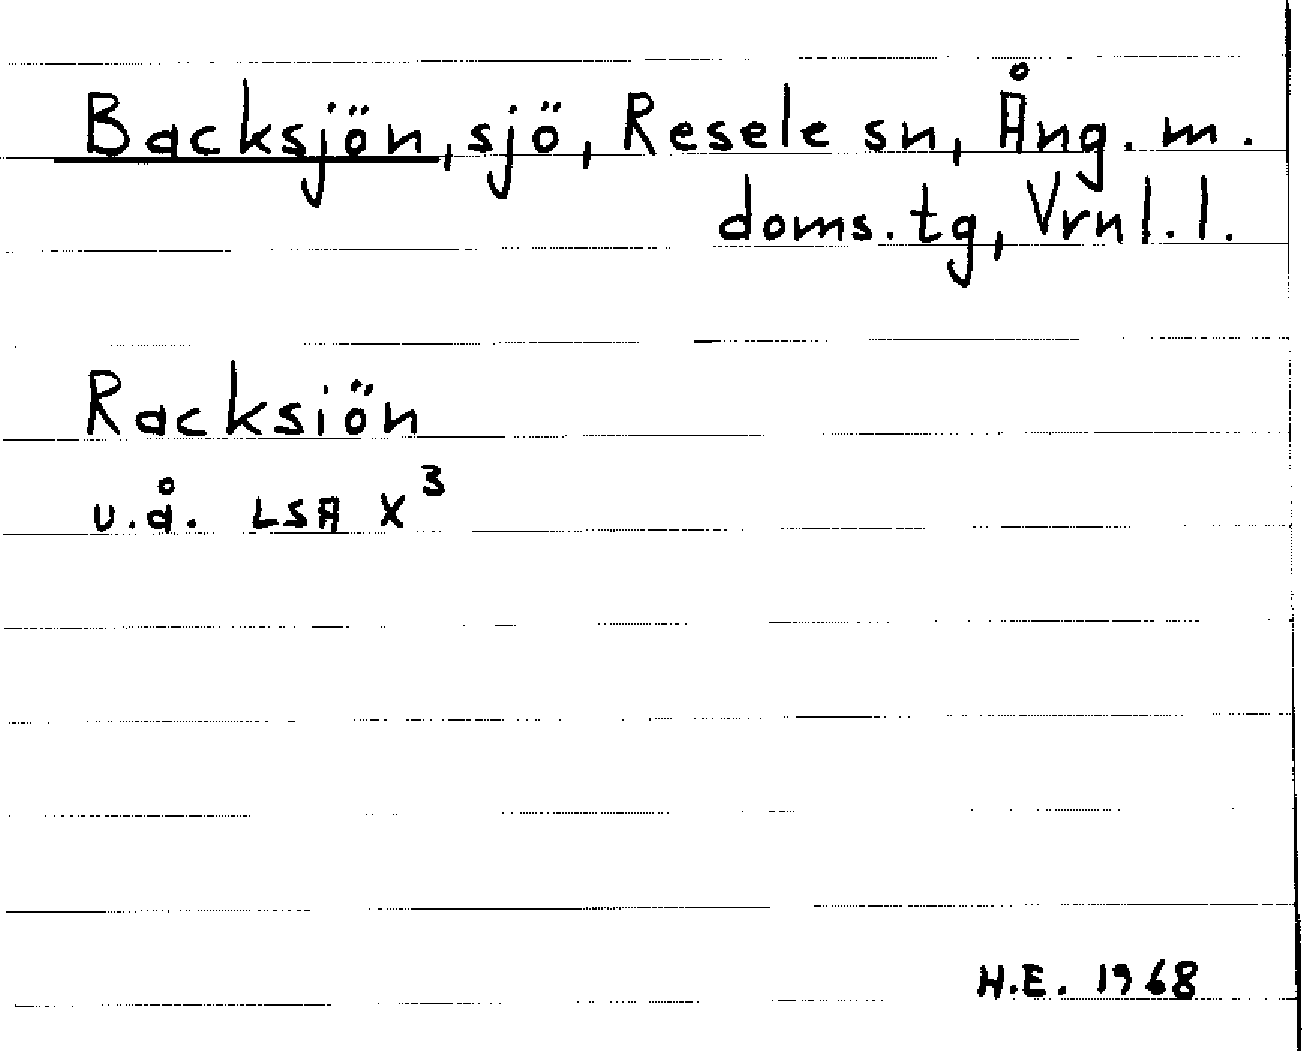 Backsjön, sjö, Resele sn, Ång. m.
doms. tg, Vrnl. l.
Racksiön
u.å. LSA X³
H.E. 1968